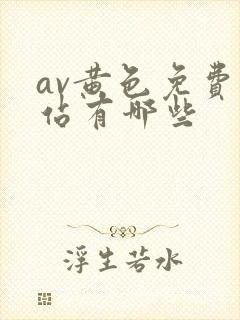 av黄色免費
佔有哪些
浮生若水